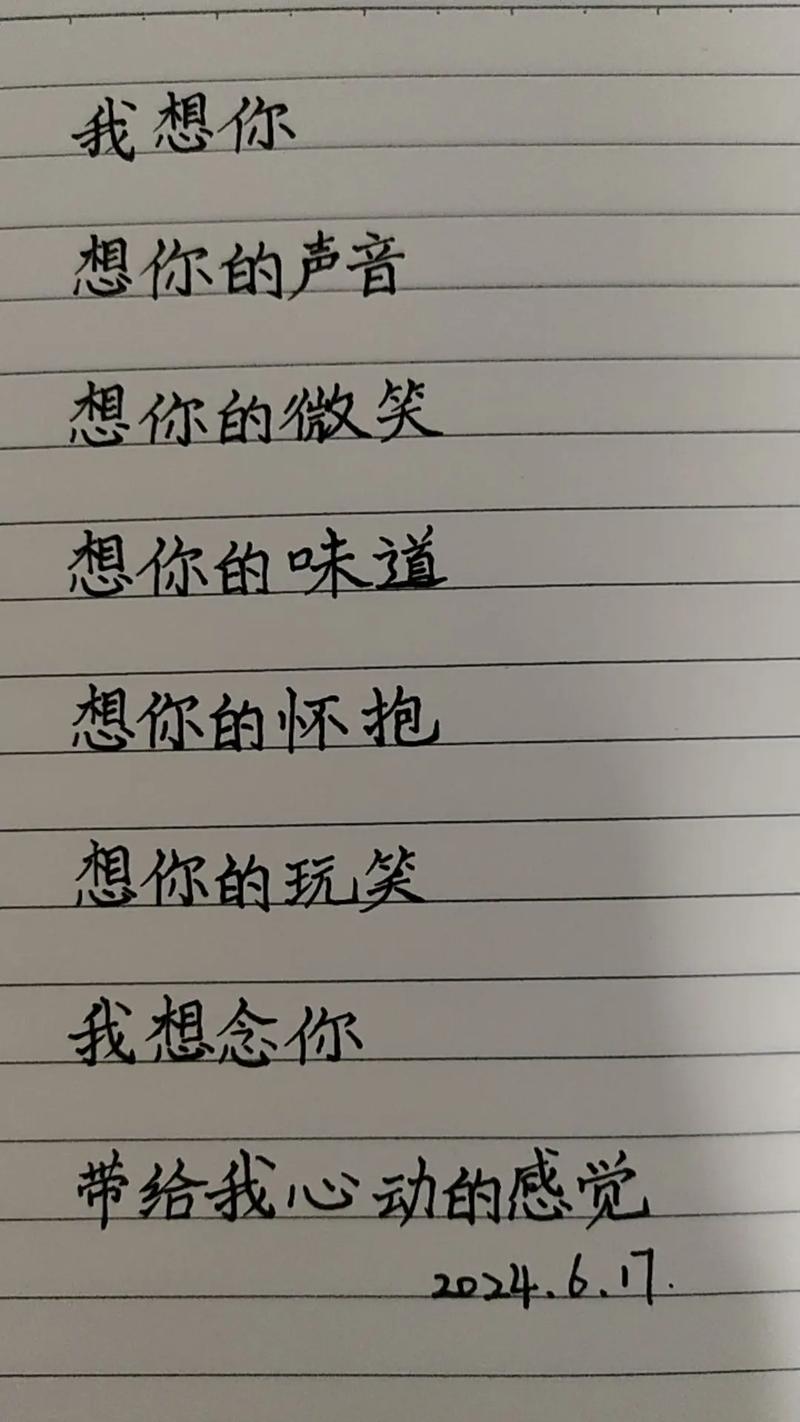 我想你
想你的声音
想你的微笑
想你的味道
想你的怀抱
想你的玩笑
我想念你
带给我心动的感觉
2024.6.17.